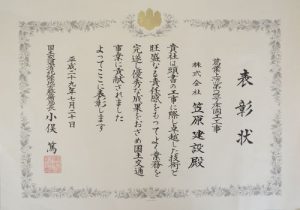 表彰状
株式会社 笠原建設殿
貴社は頭書の工事に際し卓越した技術と
旺盛なる責任感をもってよく業務を
完遂し優秀な成果をおさめ国土交通
事業に貢献されました
よってここに表彰します
平成二十九年七月二十日
小俣 篤